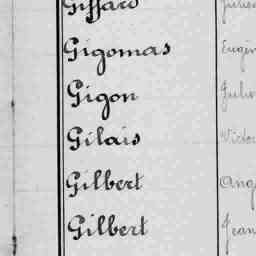 Giffard Julien
Gigomas Eugèn
Gigon Julie
Gilais Victor
Gilbert Ang
Gilbert Jean